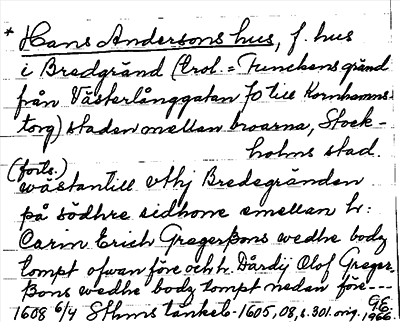 * Hans Andersons hus, f. hus
i Bredgränd (trol. = Funckens gränd
från Västerlånggatan 70 till Kornhamns-
torg) staden mellan broarna, Stock-
holms stad.
(forts.)
wästantill vthj Bredegränden
på södhre sidhone emellan h:
Carin Erich Gregerßons wedhe body
tompt ofwan före och h. Dårdij Olof Greger-
ßons wedhe body tompt nedan före---
1608 6/4 Sthms tänkeb. 1605,08, s. 301. orig. GE. 1966.